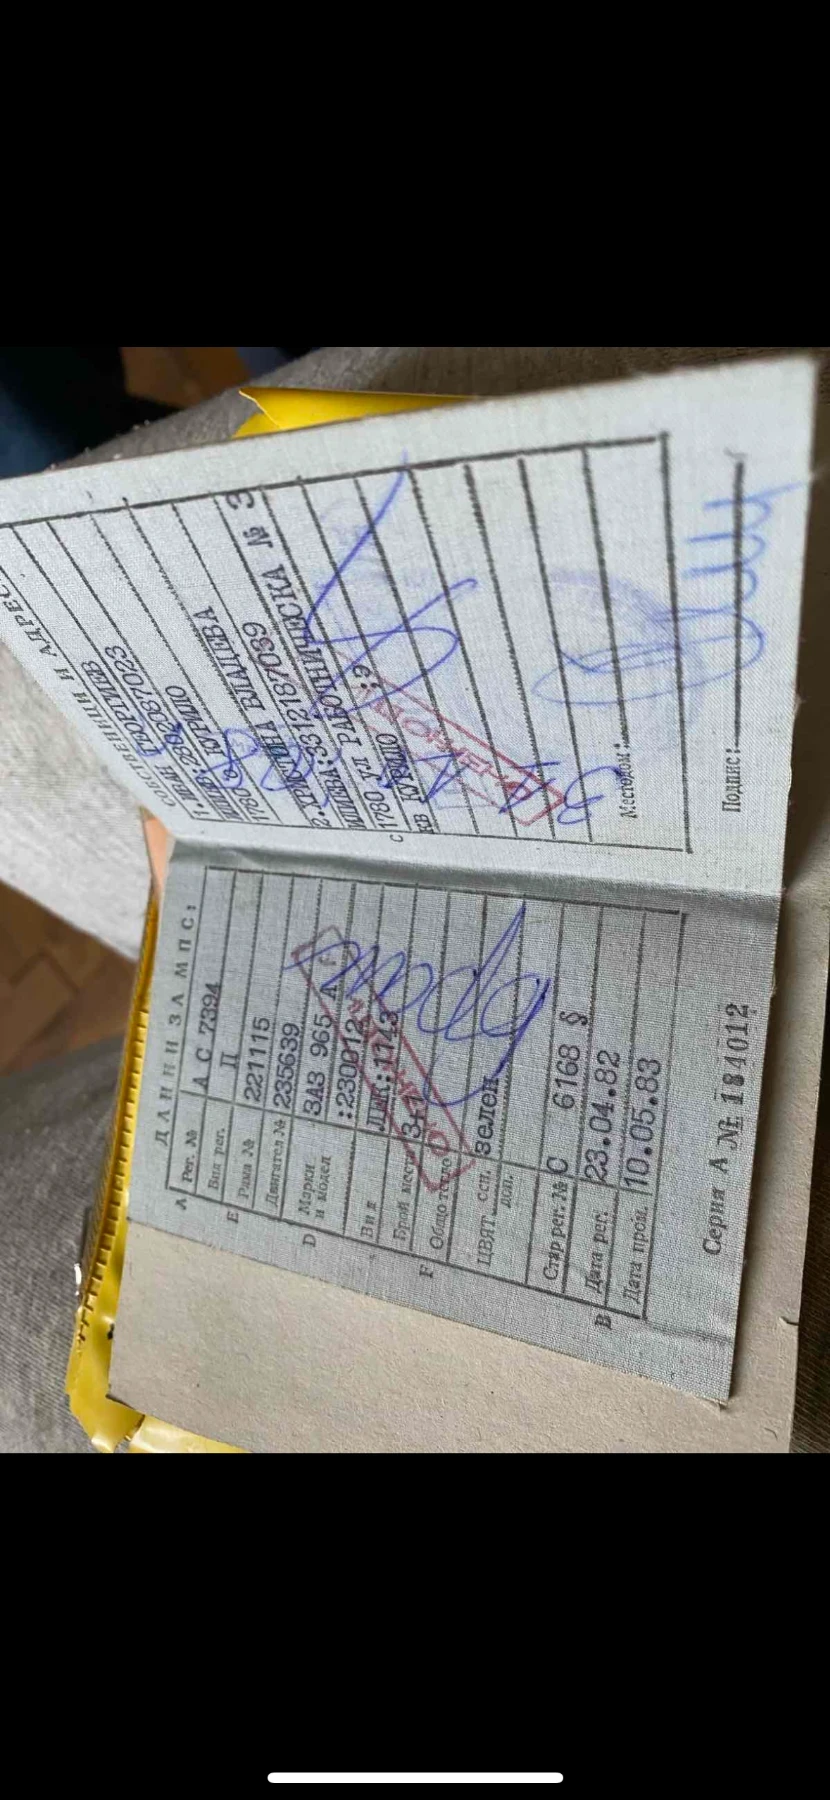 ДАННИ ЗА МПС:
A Рег. № А С 7394
Вид рег. П
E Рама № 221115
Двигател № 235639
D Марка и модел ЗАЗ 965 А
:230012
Вид ЛЕК:1143
Брой места 3+1
F Общо тегло
ЦВЯТ осн. зелен
доп.
Стар рег. № С 6168 §
B Дата рег. 23.04.82
Дата пром. 10.05.83
Серия А № 184012
СОБСТВЕНИЦИ И АДРЕС
1.ИВАН ГЕОРГИЕВ
1780 КУРИЛО
2.ХРИСТИНА ВЛАДЕВА
:3312187039
C 1780 УЛ РАБОТНИЧЕСКА № 3
КВ КУРИЛО :9
Местодом:
Подпис: